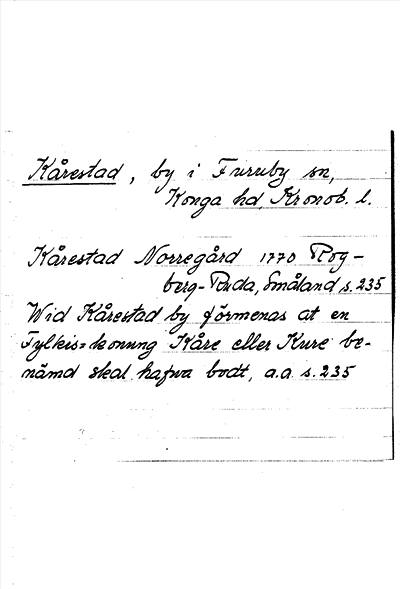 Kårestad, by i Furuby sn,
Konga hd, Kronob. l.
Kårestad Norregård 1770 Rog-
berg-Ruda, Småland s. 235
Wid Kårestad by förmenas at en
Fylkis=konung Kåre eller Kure be-
nämd skal hafwa bodt, a.a s. 235